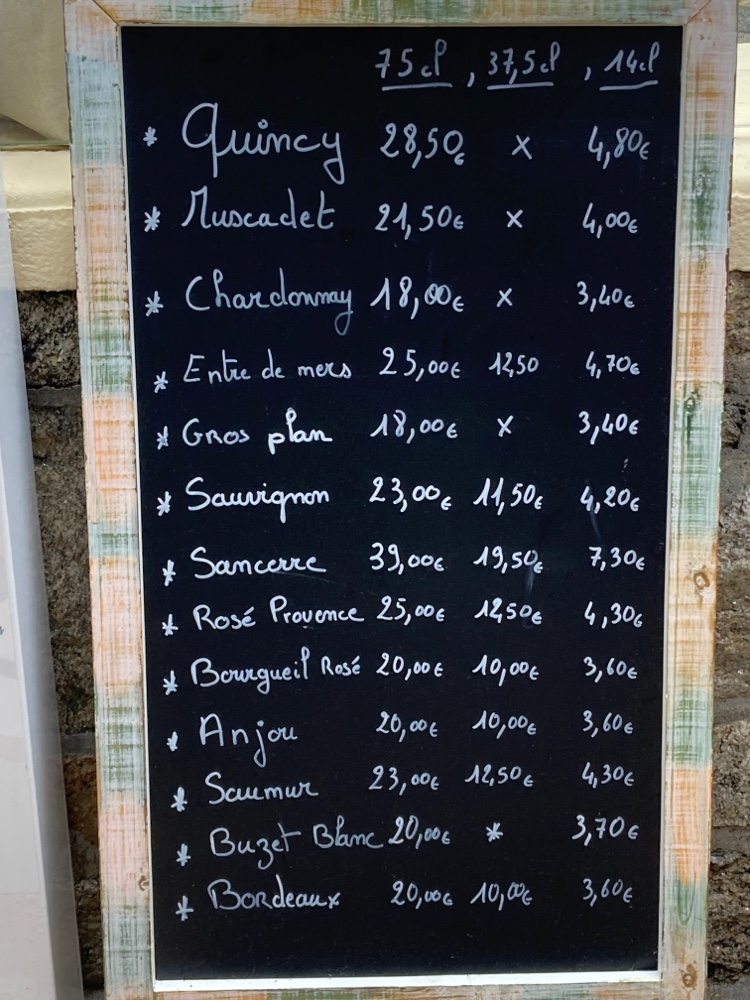 75cl, 37,5cl, 14cl
* Quincy 28,50€ x 4,80€
* Muscadet 21,50€ x 4,00€
* Chardonnay 18,00€ x 3,40€
* Entre de mers 25,00€ 12,50 4,70€
* Gros plan 18,00€ x 3,40€
* Sauvignon 23,00€ 11,50€ 4,20€
* Sancerre 39,00€ 19,50€ 7,30€
* Rosé Provence 25,00€ 12,50€ 4,30€
* Bourgueil Rosé 20,00€ 10,00€ 3,60€
* Anjou 20,00€ 10,00€ 3,60€
* Saumur 23,00€ 12,50€ 4,30€
* Buzet Blanc 20,00€ * 3,70€
* Bordeaux 20,00€ 10,00€ 3,60€